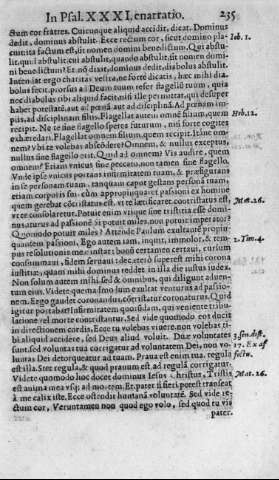 In Psal. XXXI. enarratio. 235
ctum cor fratres. Cuicunque aliquid accidit, dicat. Dominus
dedit, dominus abstulit. Ecce rectum cor, sicut domino pla- Iob. 1.
cuit ita factum est, sit nomen domini benedictum. Qui abstu-
lit, quid abstulit. cui abstulit, quando abstulit. sit nomen domi-
ni benedictum. Et nō dixit, dominus dedit, diabolus abstulit.
Intendat ergo charitas vestra, ne forte dicatis, hæc mihi dia-
bolus fecit. prorsus ad Deum tuum refer flagellū tuum, quia
nec diabolus tibi aliquid facit, nisi ille permittat, qui desuper
habet potestatē, aut ad pœnā aut ad disciplinā. Ad pœnam im-
piis, ad disciplinam filiis. Flagellat autem omnē filium, quem
recipit. Ne te sine flagello speres futurum, nisi forte cogites Heb. 12.
exhæredari. Flagellat omnem filium, quem recipit. Itane om-
nem? Vbi te volebas abscōdere? Omnem, & nullus exceptus,
nullus sine flagello erit. Quid ad omnem? Vis audire, quem
omnem? Etiam vnicus sine peccato, non tamen sine flagello.
Vnde ipse vnicus portans infirmitatem tuam, & præfigurans
in se personam tuam, tanquam caput gestans personā
etiam corporis sui, cùm appropinquaret passioni ex homine
quem gerebat cōtristatus est, vt te lætificaret. contristatus est, Mat. 26.
vt te consolaretur. Potuit enim vtique sine tristitia esse domi-
nus iturus ad passionē. si potuit miles, non potuit imperator?
Quomodo potuit miles? Attende Paulum exultantē propin-
quantem passioni. Ego autem iam, inquit, immolor, & tem- 2. Tim. 4.
pus resolutionis meæ instat: bonū certamen certaui, cursum
consummaui, fidem seruaui: de cætero superest mihi corona
iustitiæ, quam mihi dominus reddet in illa die iustus iudex.
Non solum autem mihi sed & omnibus, qui diligunt aduen-
tum eius. Videte quemadmodum exultat venturus ad passio-
nem. Ergo gaudet coronandus, cōtristatur coronaturus. Quid
igitur portabat? infirmitatem quorūdam, qui veniente tribu-
latione vel morte contristantur. Sed vide quomodo eos ducit
in directionem cordis. Ecce tu volebas viuere, non volebas ti-
bi aliquid accidere, sed Deus aliud voluit. Duæ voluntates 3. sen. dist.
sunt, sed voluntas tua corrigatur ad voluntatem Dei, non vo- 17. Ex af
luntas Dei detorqueatur ad tuam. Praua est enim tua, regula fectu.
est illa. Stet regula, & quod prauum est ad regulā corrigatur.
Videte quomodo hoc docet dominus Iesus Christus. Tristis Mat. 26.
est anima mea vsque ad mortem. Et, pater si fieri potest transeat
à me calix iste. Ecce ostendit humanā voluntatē. Sed vide re-
ctum cor, Veruntamen non quod ego volo, sed quod tu vis
pater.